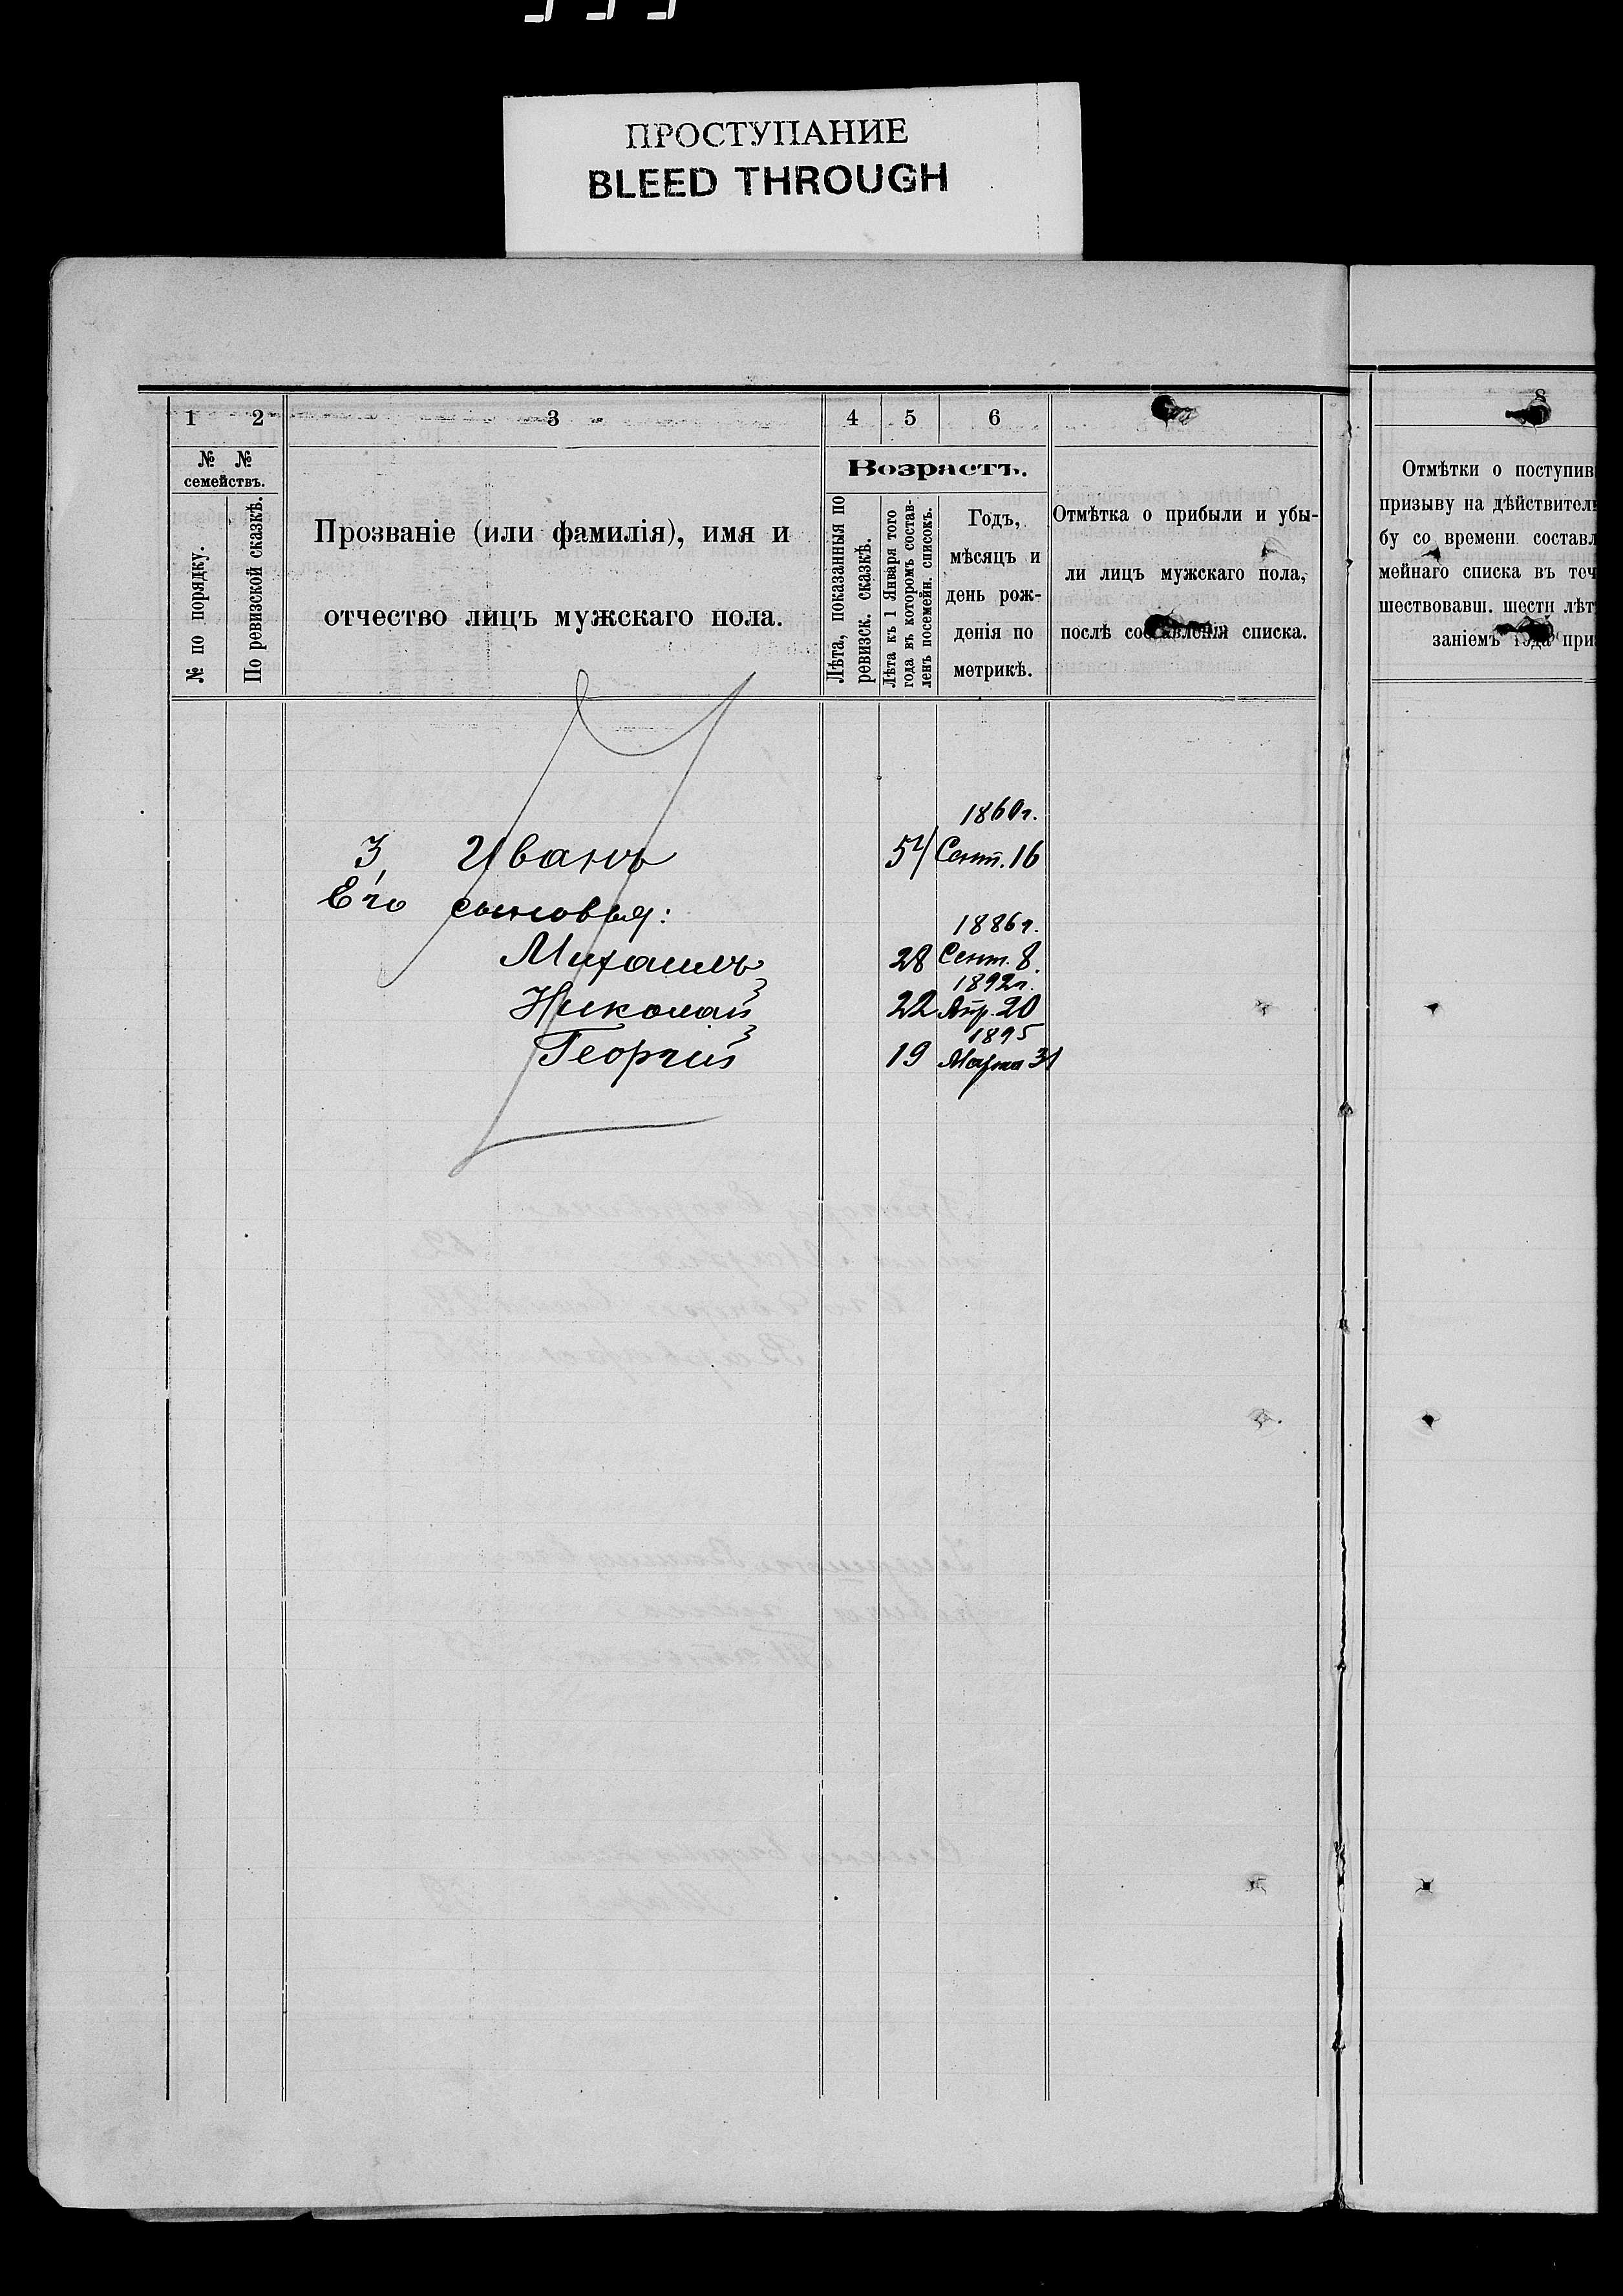 ПРОСТУПАНИЕ
BLEED THROUGH
1 2 3 4 5 6
№ № семействъ.
№ по порядку.
По ревизской сказкѣ.
Прозваніе (или фамилія), имя и
отчество лицъ мужскаго пола.
Возрастъ.
Лѣта, показанныя по
ревизск. сказкѣ.
Лѣта къ 1 Января того
года въ которомъ состав-
ленъ посемейн. списокъ.
Годъ,
мѣсяцъ и
день рож-
денія по
метрикѣ.
Отмѣтка о прибыли и убы-
ли лицъ мужскаго пола,
послѣ составленія списка.
8
Отмѣтки о поступив
призыву на дѣйствитель
бу со времени составл
мейнаго списка въ теч
шествовавш. шести лѣт
заніемъ года при
1860 г.
3, Иванъ 54 Сент. 16
Его сыновья:
1886 г.
Михаилъ 28 Сент. 8.
1892 г.
Николай 22 Апр. 20
1895
Георгій 19 Марта 31